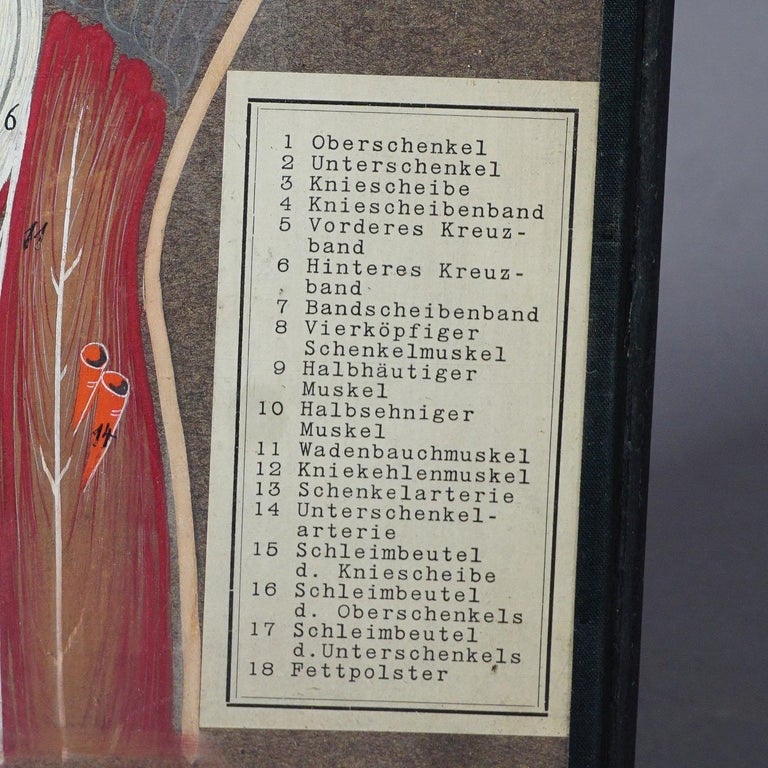 6
11
14
1 Oberschenkel
2 Unterschenkel
3 Kniescheibe
4 Kniescheibenband
5 Vorderes Kreuz-
band
6 Hinteres Kreuz-
band
7 Bandscheibenband
8 Vierköpfiger
Schenkelmuskel
9 Halbhäutiger
Muskel
10 Halbsehniger
Muskel
11 Wadenbauchmuskel
12 Kniekehlenmuskel
13 Schenkelarterie
14 Unterschenkel-
arterie
15 Schleimbeutel
d. Kniescheibe
16 Schleimbeutel
d. Oberschenkels
17 Schleimbeutel
d.Unterschenkels
18 Fettpolster